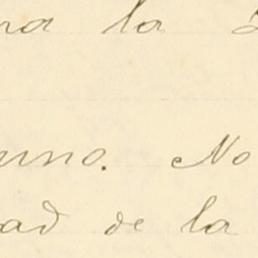 na la
uno. No
ad de la